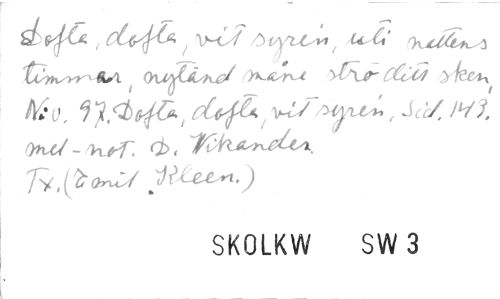 Dofta, dofta, vit syrén, uti nattens
timmar, nytänd måne strö ditt sken,
N:o. 97. Dofta, dofta, vit syrén, Sid. 143.
mel-not. D. Wikander.
Tx. (Emil Kleen.)
SKOLKW SW 3